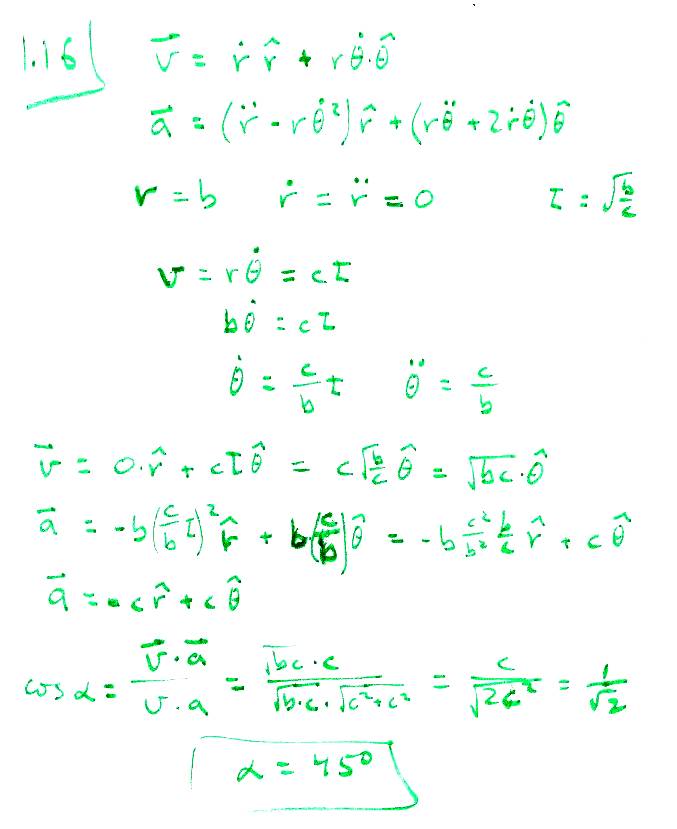 1.16 v⃗ = ṙ r̂ + r θ̇·θ̂
a⃗ = (r̈ - r θ̇²) r̂ + (r θ̈ + 2ṙ θ̇) θ̂
r = b ṙ = r̈ = 0 τ = √(b/c)
v = r θ̇ = cτ
b θ̇ = cτ
θ̇ = c/b τ θ̈ = c/b
v⃗ = 0·r̂ + cτ θ̂ = c √(b/c) θ̂ = √(bc)·θ̂
a⃗ = -b(c/b τ)² r̂ + b(c/b) θ̂ = -b c²/b² b/c r̂ + c θ̂
a⃗ = -c r̂ + c θ̂
cos α = (v⃗·a⃗)/(v·a) = (√(bc)·c)/(√(b·c)·√(c²+c²)) = c/√(2c²) = 1/√2
α = 45°